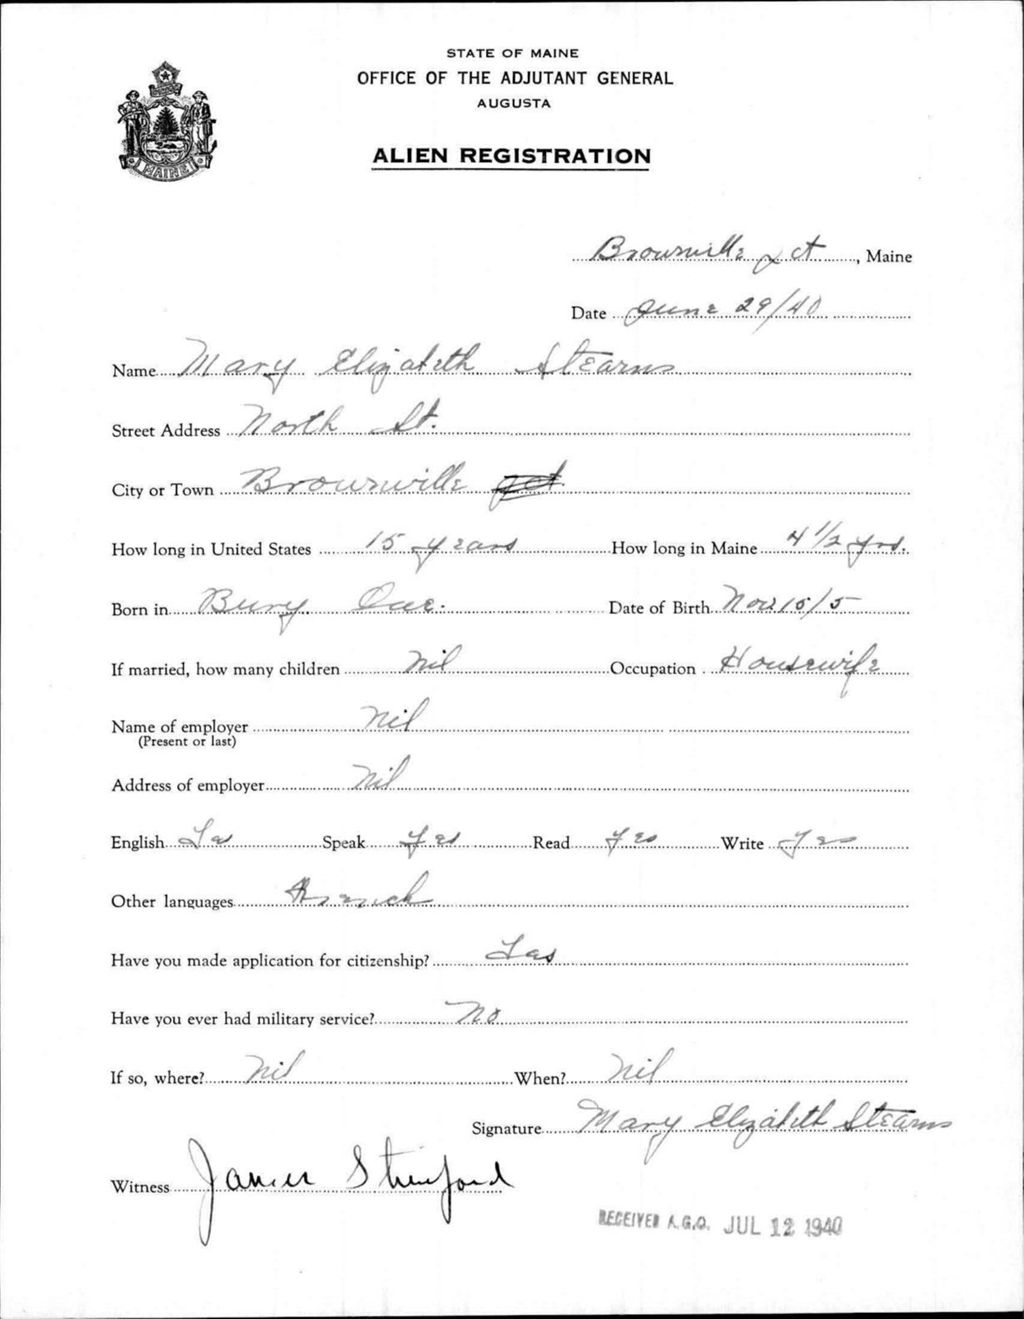 STATE OF MAINE
OFFICE OF THE ADJUTANT GENERAL
AUGUSTA
ALIEN REGISTRATION
MAINE
Brownville Jct, Maine
Date June 29/40
Name Mary Elizabeth Stearns
Street Address North St.
City or Town Brownville
How long in United States 15 years How long in Maine 4 1/2 yrs.
Born in Bury Que. Date of Birth Nov 15/5
If married, how many children Nil Occupation Housewife
Name of employer Nil
(Present or last)
Address of employer Nil
English Yes Speak Yes Read Yes Write Yes
Other languages French
Have you made application for citizenship? Yes
Have you ever had military service? No
If so, where? Nil When? Nil
Signature Mary Elizabeth Stearns
Witness James
RECEIVED A.G.O. JUL 12 1940